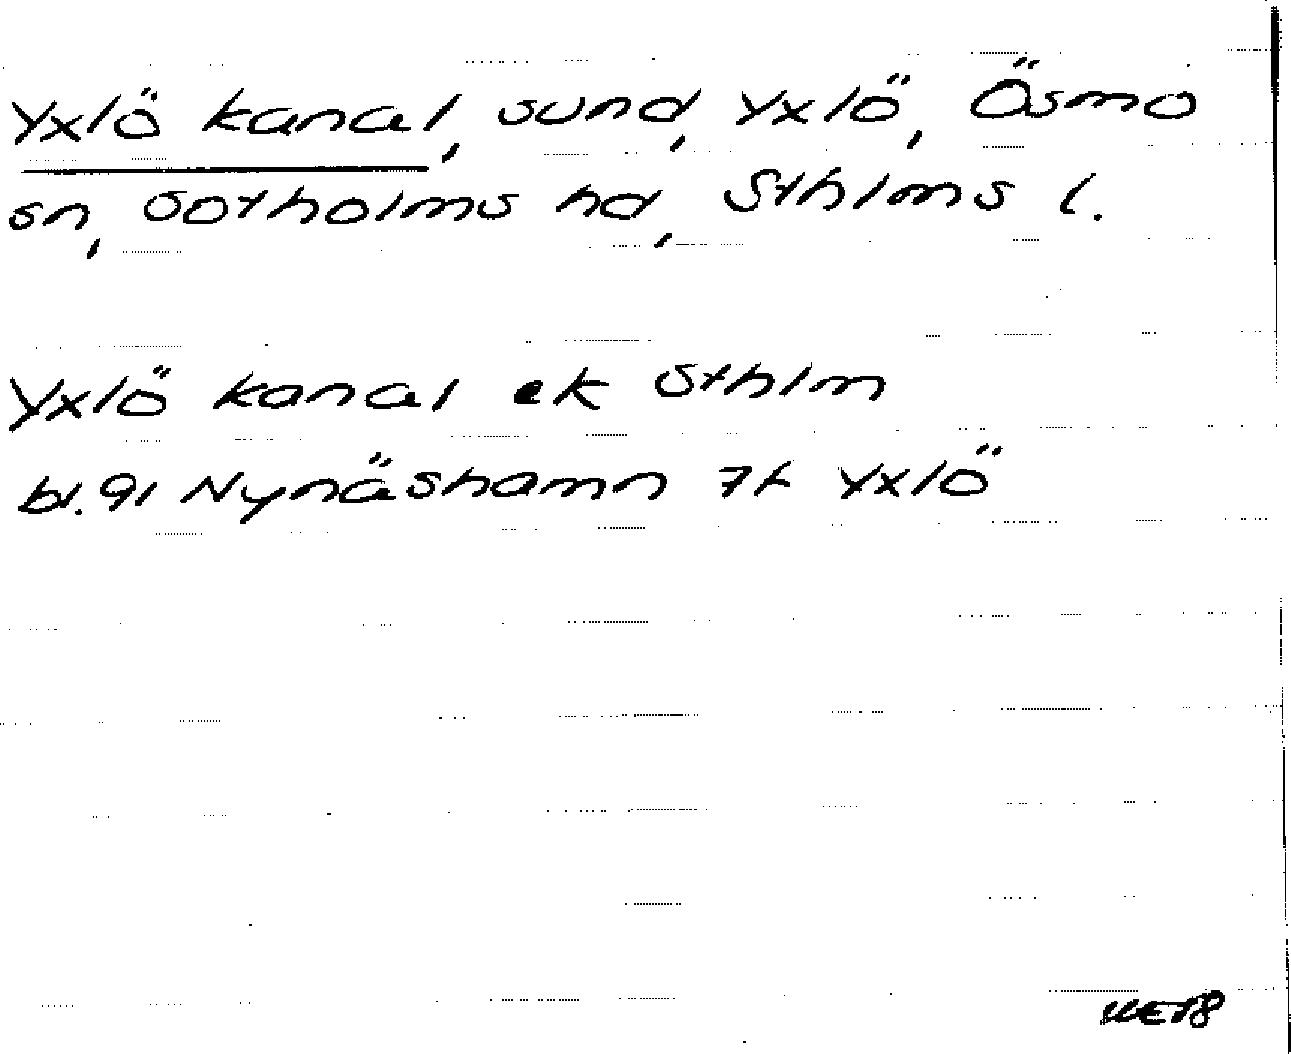 Yxlö kanal, sund, Yxlö, Ösmo
sn, Sotholms hd, Sthlms l.
Yxlö kanal ek Sthlm
bl. 91 Nynäshamn 7k Yxlö